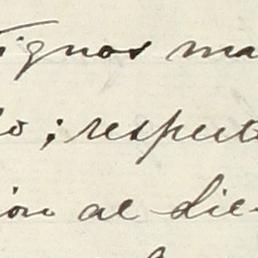 ignos ma
lo; respecto
ión al die-